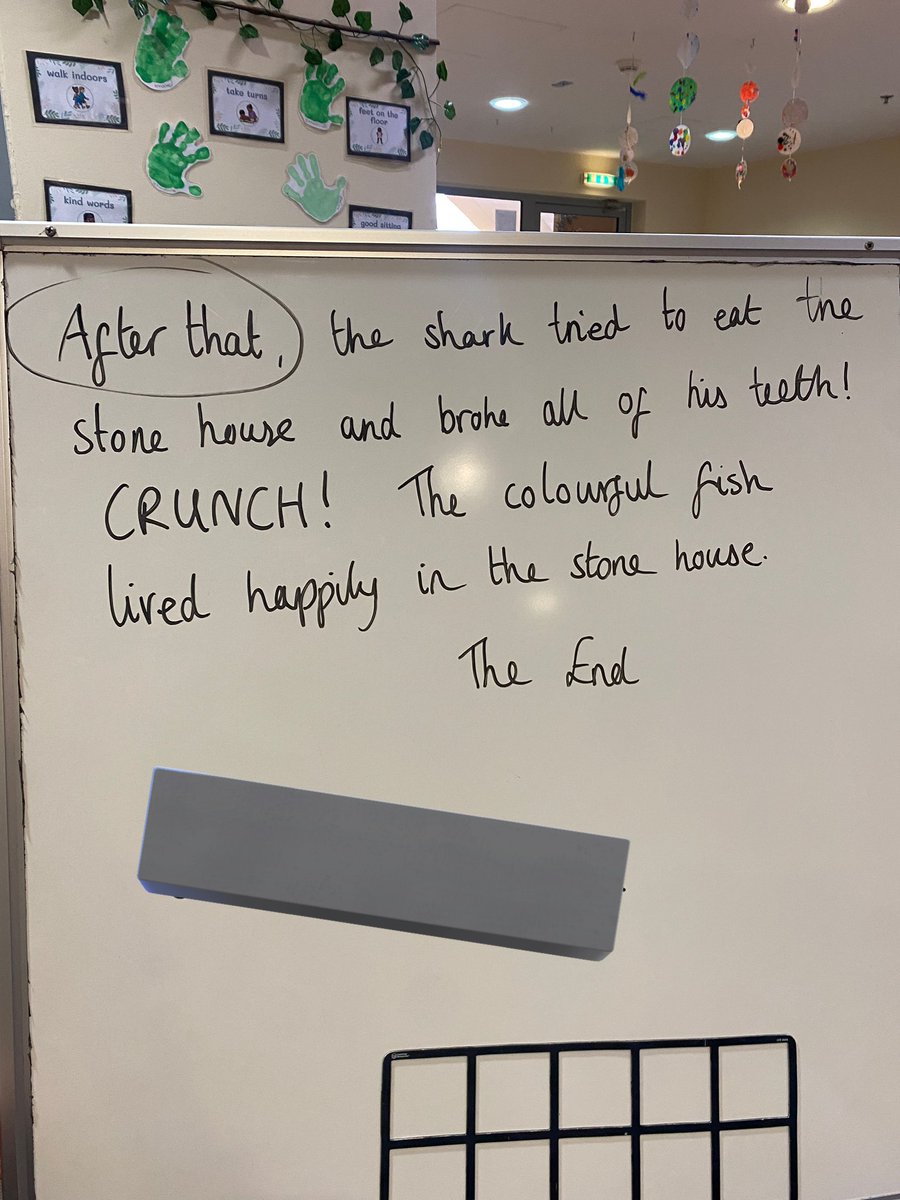 walk indoors
take turns
feet on the floor
kind words
good sitting
After that, the shark tried to eat the
stone house and broke all of his teeth!
CRUNCH! The colourful fish
lived happily in the stone house.
The End